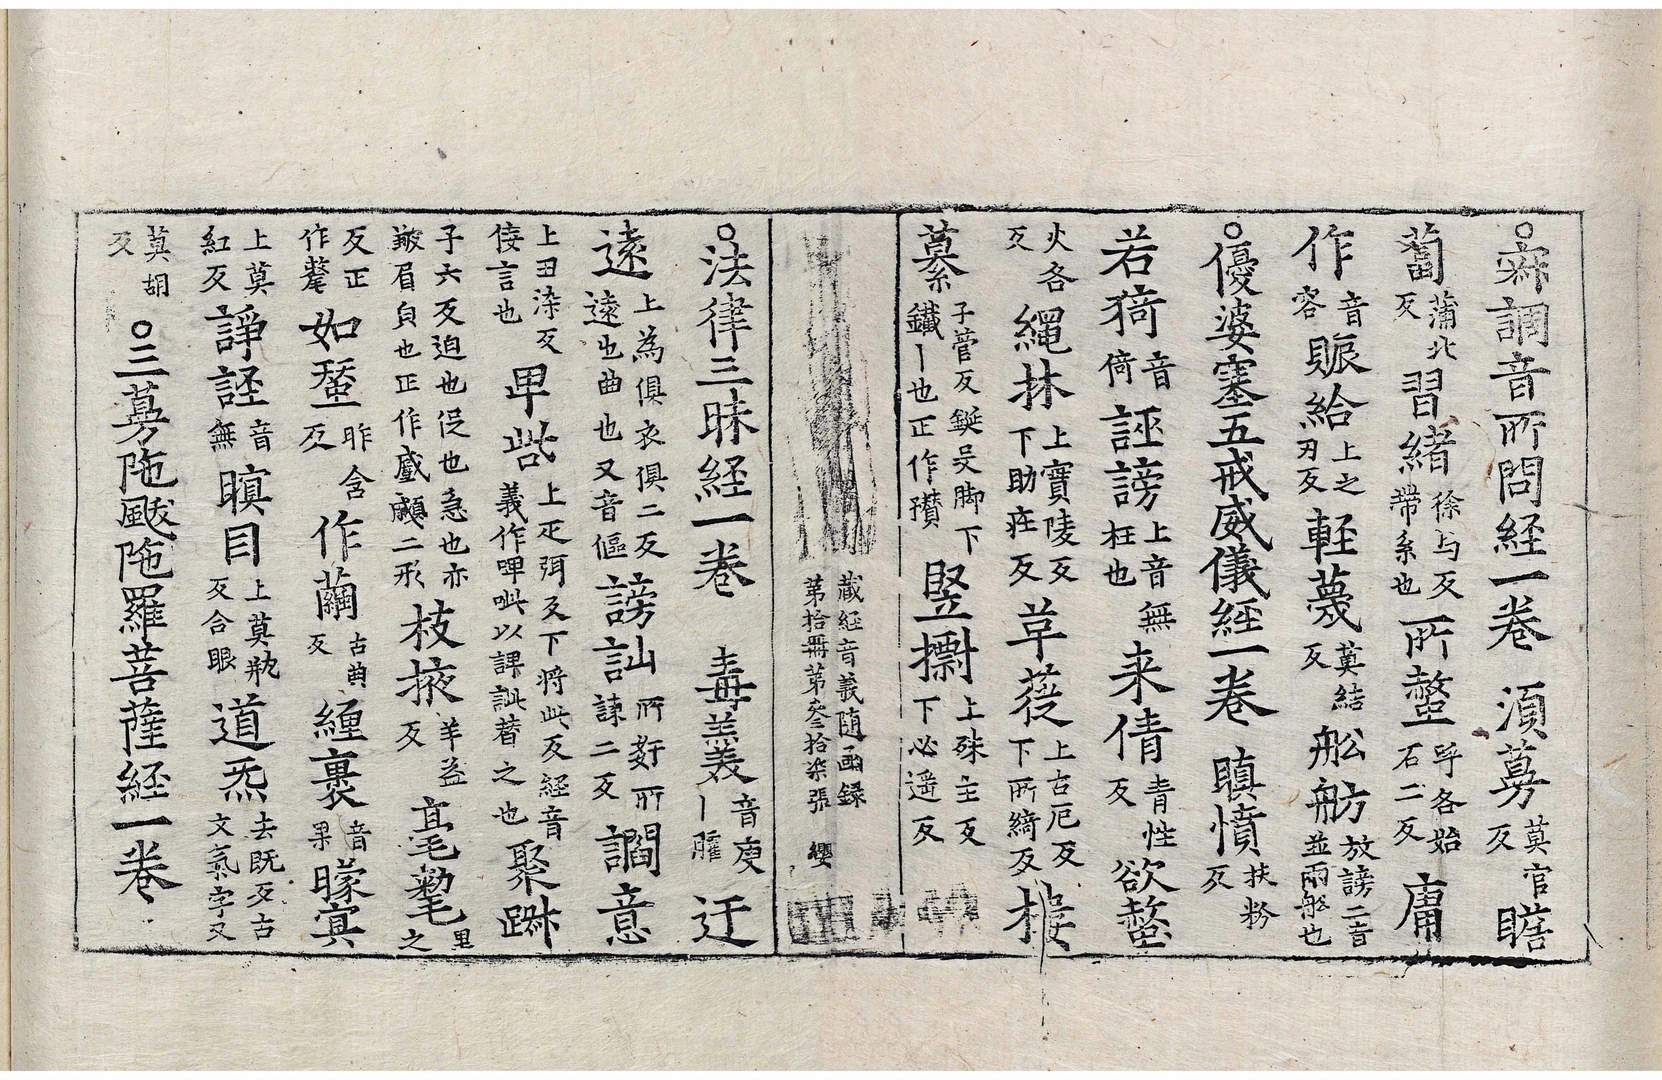 ○寐調音所問経一卷 須蕚莫官反瞻
蔔蒲北反習緒徐与反帶系也所螫呼各始石二反庸
作音容賑給上之刃反軽蔑莫結反舩舫放謗二音並兩舩也
○優婆塞五戒威儀経一卷 瞋憤扶粉反
若猗音倚誣謗上音無枉也来倩青性反欲螫
火各反繩牀上實陵反下助疰反草蓰上古厄反下所綺反椄
纂子菅反鋋吴脚下鐵丨也正作欑竪㩽上殊主反下必遥反
藏経音義随函録第拾冊第叄拾柒張 纓
○法律三昧経一卷 毒羕音庾丨䑏迂
遠上為俱衣俱二反逺也曲也又音傴謗訕所姧所諫二反讇意
上丑染反倿言也卑呰上疋弭反下將此反経音義作啤呲以諀訿替之也聚踧
子六反迫也促也急也亦皺眉皃也正作顣二形枝掖羊益反毫氂里之
反正作氂如蝅昨含反作繭古典反纏裹音果矇㝠
上莫紅反諍誣音無瞑目上莫觙反合眼道炁去既反古文氣字又
莫胡反 ○三蕚陁颰陁羅菩薩経一卷